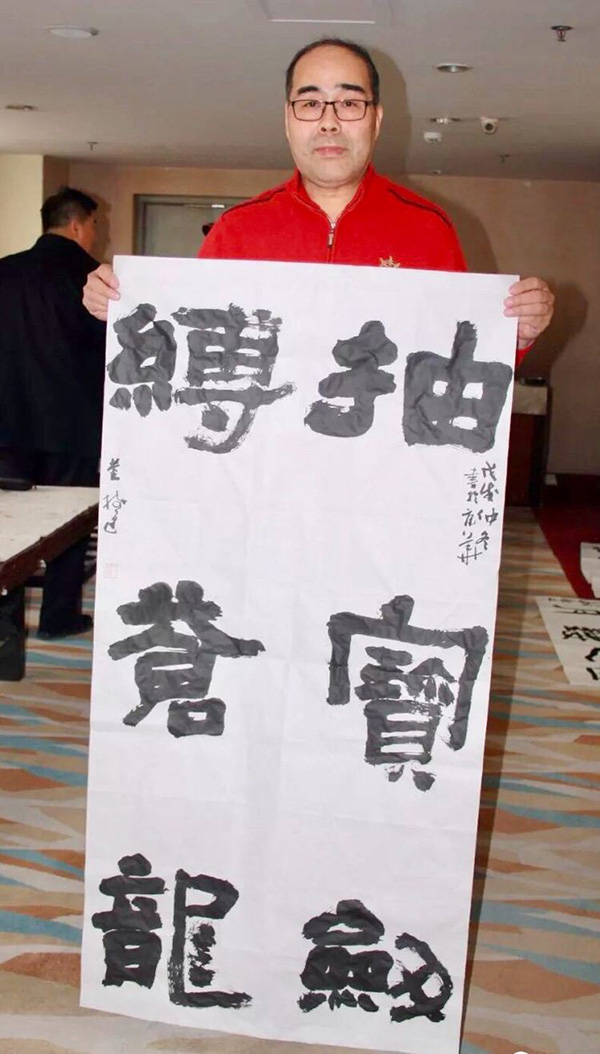 抽寶劒
戊戌仲冬
書於京華
縛蒼龍